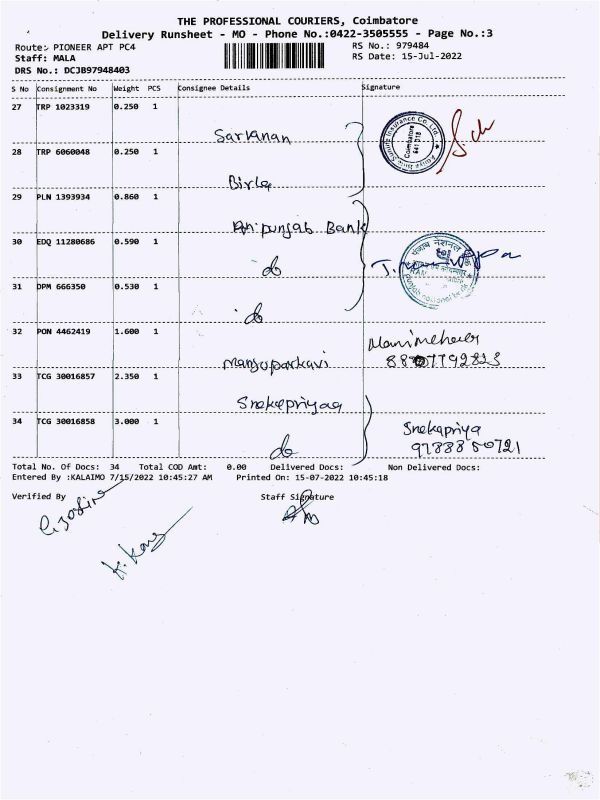 THE PROFESSIONAL COURIERS, Coimbatore
Delivery Runsheet - MO - Phone No.:0422-3505555 - Page No.:3
Route: PIONEER APT PC4
RS No.: 979484
Staff: MALA
RS Date: 15-Jul-2022
DRS No.: DCJB97948403
S No Consignment No Weight PCS Consignee Details Signature
27 TRP 1023319 0.250 1
Sarvanan
28 TRP 6060048 0.250 1
Birla
29 PLN 1393934 0.860 1
punjab Bank
30 EDQ 11280686 0.590 1
do
31 DPM 666350 0.530 1
do
32 PON 4462419 1.600 1
33 TCG 30016857 2.350 1
34 TCG 30016858 3.000 1
Snekapriya
do
Total No. Of Docs: 34 Total COD Amt: 0.00 Delivered Docs: Non Delivered Docs:
Entered By :KALAIMO 7/15/2022 10:45:27 AM Printed On: 15-07-2022 10:45:18
Verified By Staff Signature